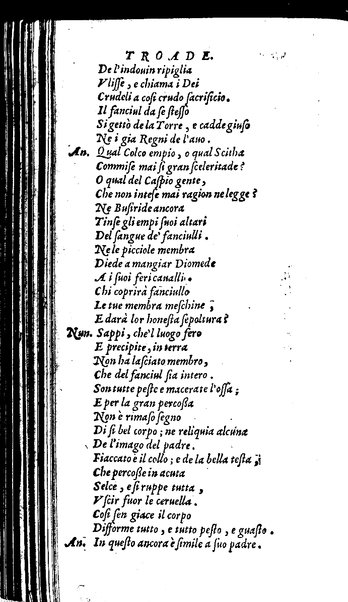 TROADE.
De l'indouin ripiglia
Vlisse, e chiama i Dei
Crudeli a così crudo sacrificio.
Il fanciul da se stesso
Si gettò de la Torre, e cadde giuso
Ne i gia Regni de l'auo.
An. Qual Colco empio, o qual Scitha
Commise mai sì gran sceleritade?
O qual del Caspio gente,
Che non intese mai ragion ne legge?
Ne Busiride ancora
Tinse gli empi suoi altari
Del sangue de' fanciulli.
Ne le picciole membra
Diede a mangiar Diomede
A i suoi feri caualli.
Chi coprirà fanciullo
Le tue membra meschine;
E darà lor honesta sepoltura?
Nun. Sappi, che'l luogo fero
E precipite, in terra
Non ha lasciato membro,
Che del fanciul sia intero.
Son tutte peste e macerate l'ossa;
E per la gran percossa
Non è rimaso segno
Di sì bel corpo; ne reliquia alcuna
De l'imago del padre.
Fiaccato è il collo; e de la bella testa,
Che percosse in acuta
Selce, e si ruppe tutta,
Vscir fuor le ceruella.
Così sen giace il corpo
Difforme tutto, e tutto pesto, e guasto.
An. In questo ancora è simile a suo padre.